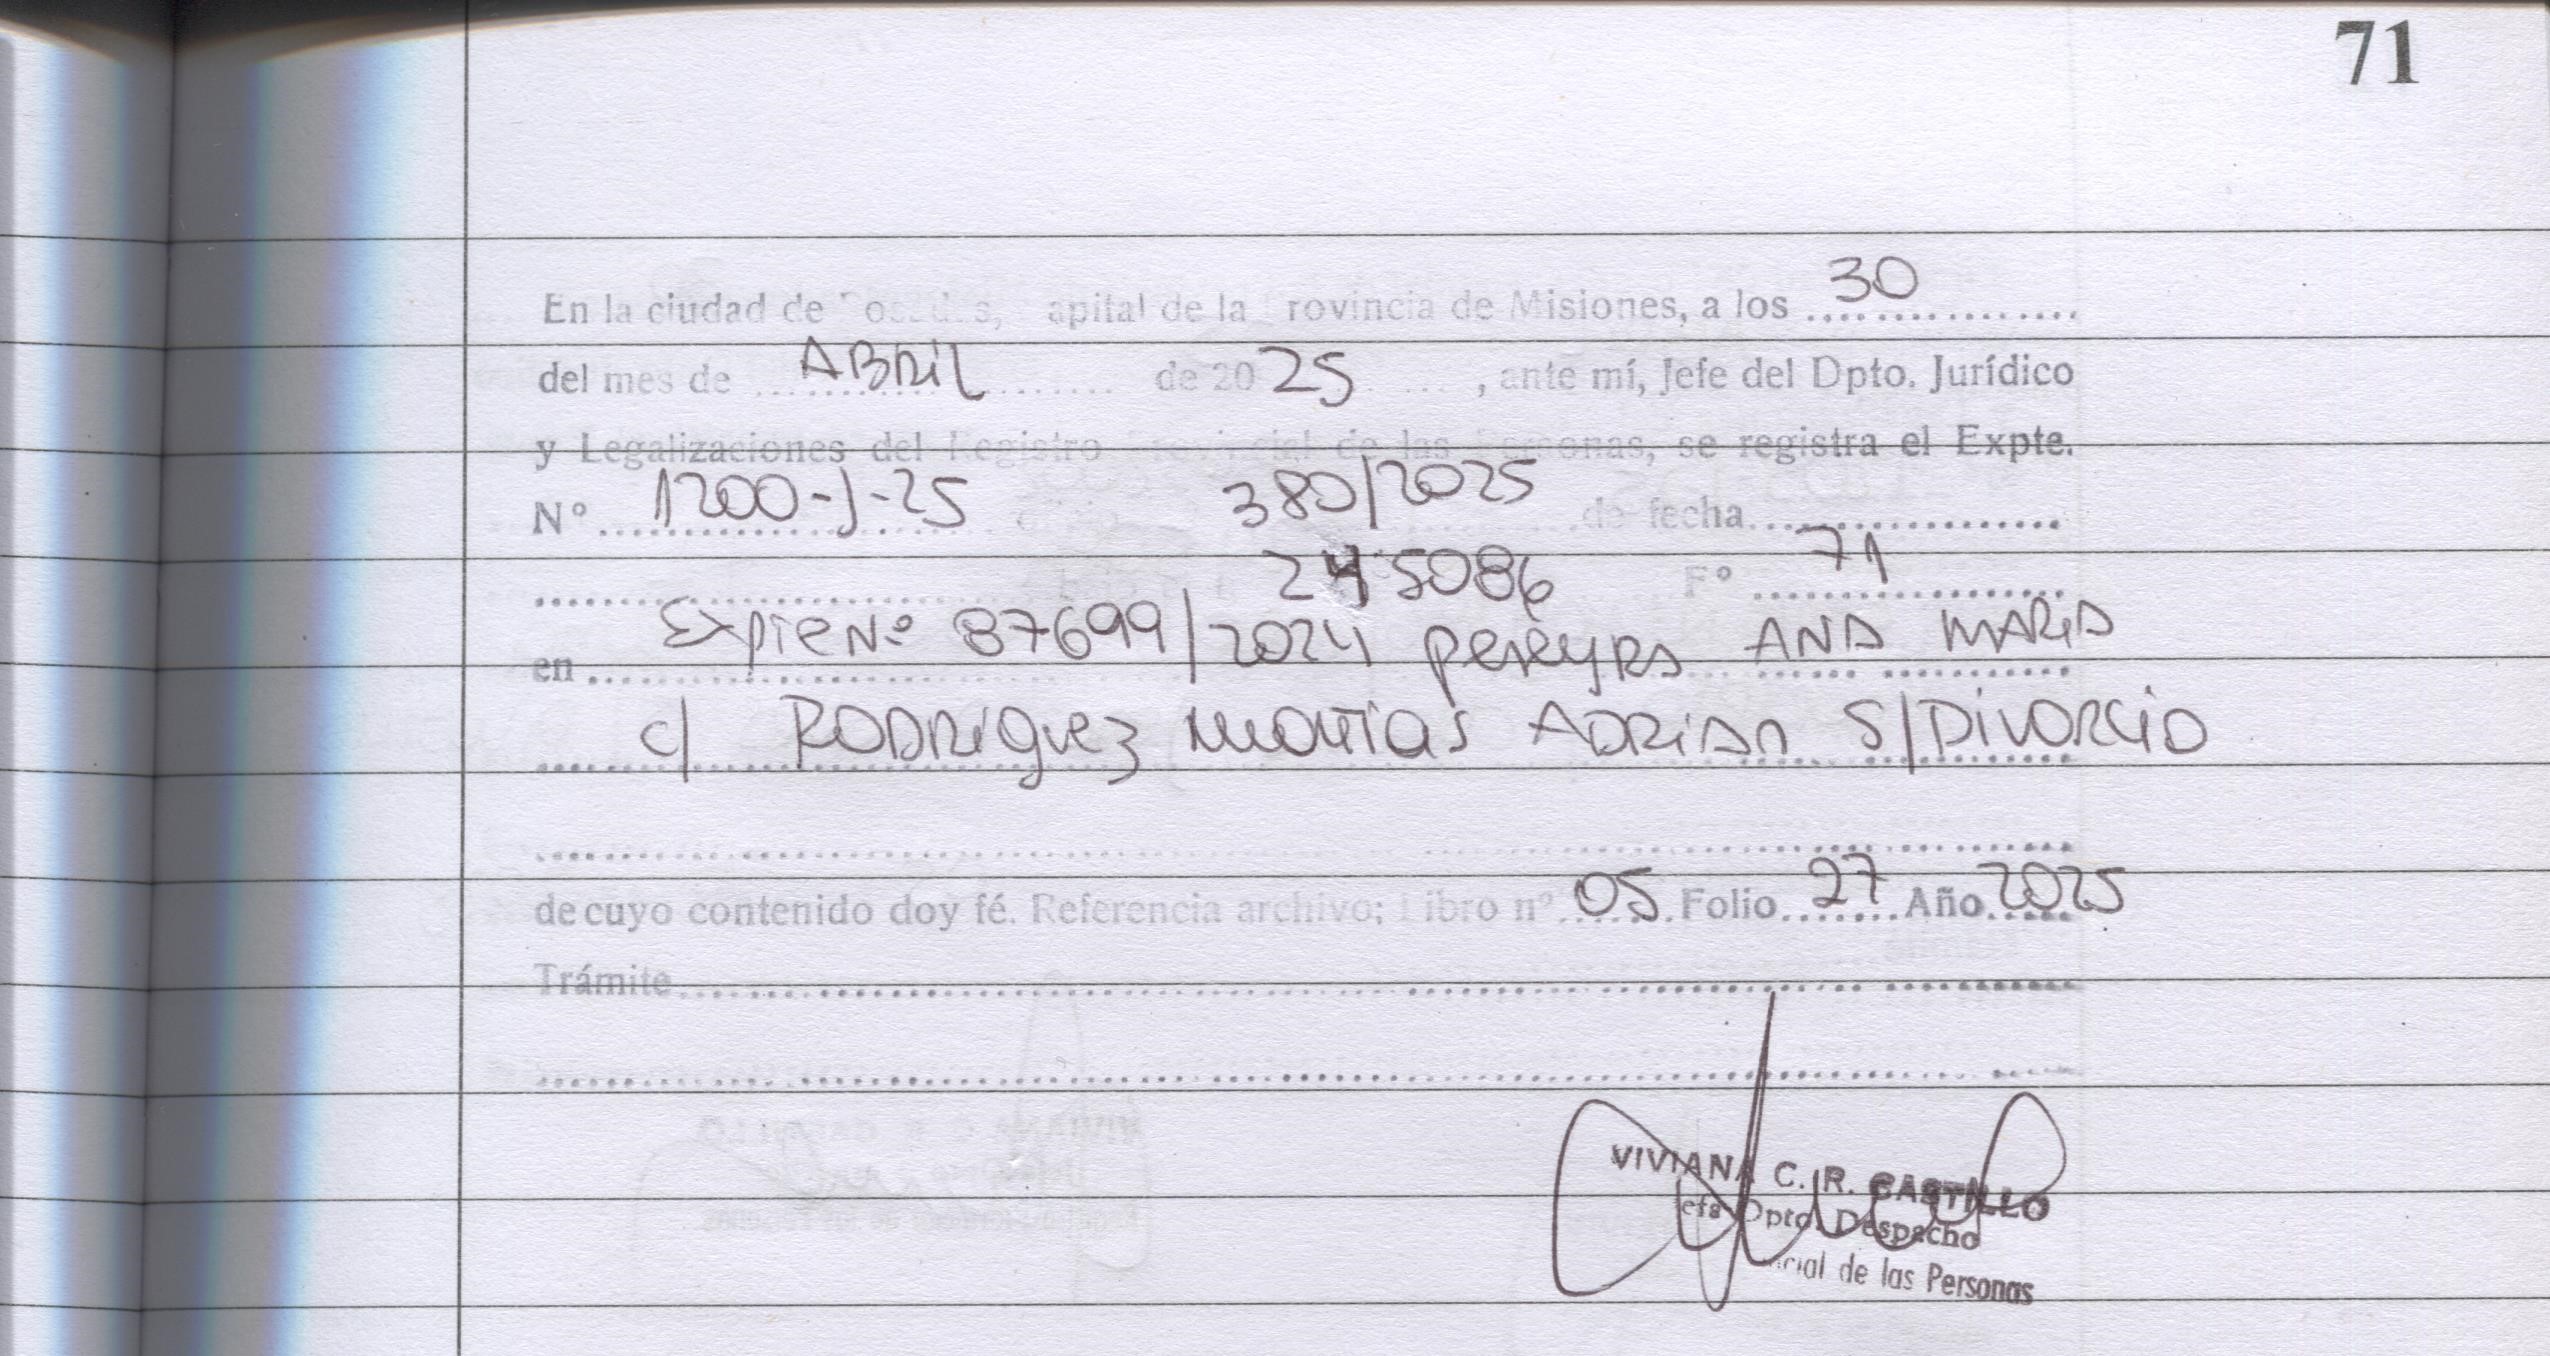 71
En la ciudad de Posadas, Capital de la Provincia de Misiones, a los 30
del mes de ABRIL de 2025, ante mí, Jefe del Dpto. Jurídico
y Legalizaciones del Registro Provincial de las Personas, se registra el Expte.
Nº 1200-J-25 380/2025 de fecha
245086 Fº 71
en Expte Nº 87699/2024 pereyra ANA MARIA
c/ RODRiguez Matias ADRIAn S/DIVORCIO
de cuyo contenido doy fé. Referencia archivo; Libro nº 05 Folio 27 Año 2025
Trámite
VIVIANA C. R. CASTILLO
Jefa Dpto. Despacho
de las Personas